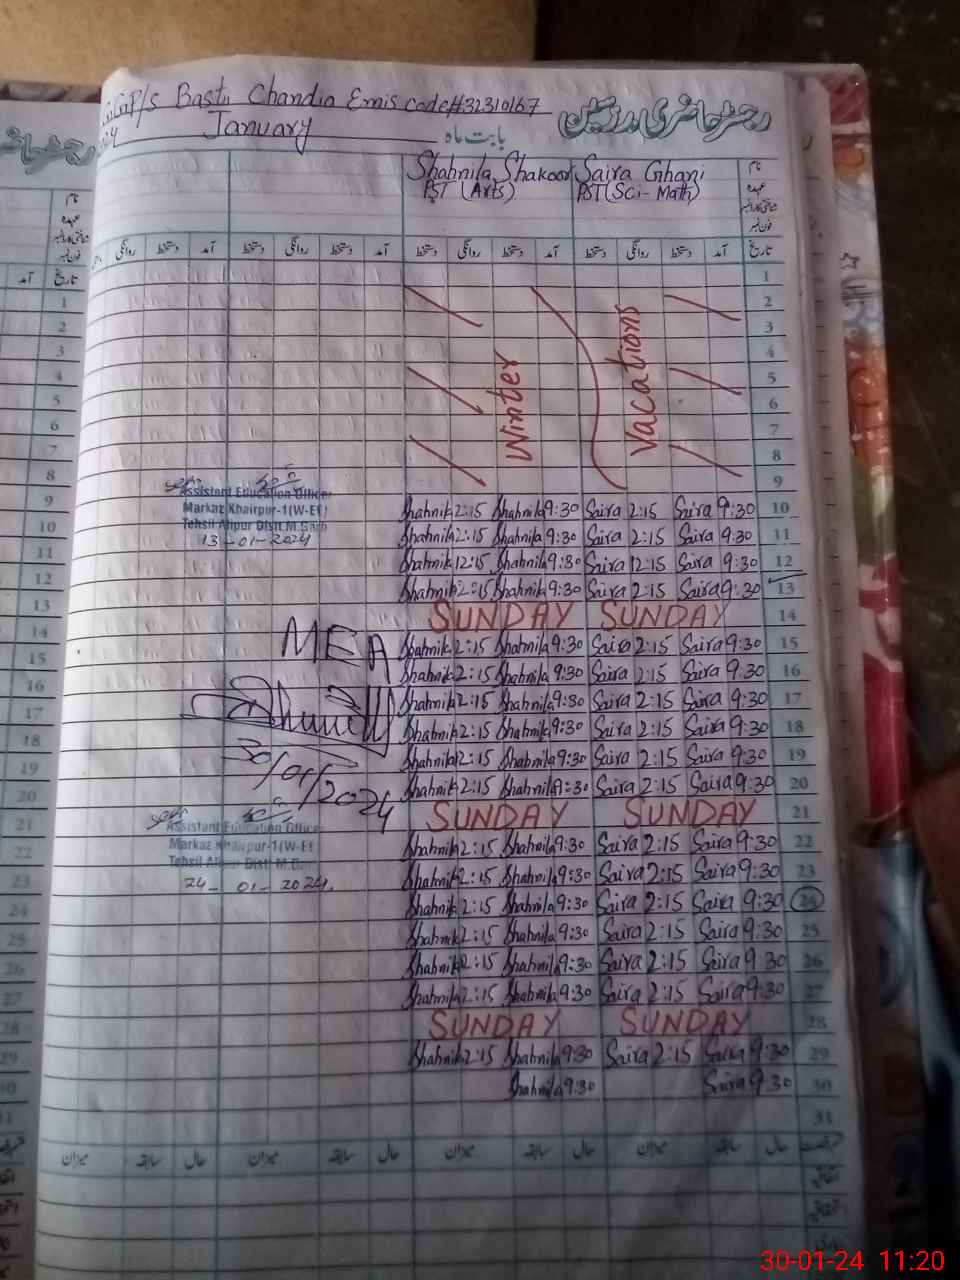 GGP/s Basti Chandia Emis code#32310167
رجسٹر حاضری مدرسین
January بابت ماہ
Shahnila Shakoor Saira Ghani نام
PST (Arts) PST (Sci-Math) عہدہ
شناختی کارڈ نمبر
فون نمبر
روانگی دستخط آمد دستخط روانگی دستخط آمد دستخط روانگی دستخط آمد تاریخ
1
2
3
4
5
6
7
8
9
Winter Vacations
Shahnila 2:15 Shahnila 9:30 Saira 2:15 Saira 9:30 10
Shahnila 2:15 Shahnila 9:30 Saira 2:15 Saira 9:30 11
Shahnila 12:15 Shahnila 9:30 Saira 12:15 Saira 9:30 12
Shahnila 2:15 Shahnila 9:30 Saira 2:15 Saira 9:30 13
SUNDAY SUNDAY 14
Shahnila 2:15 Shahnila 9:30 Saira 2:15 Saira 9:30 15
Shahnila 2:15 Shahnila 9:30 Saira 2:15 Saira 9:30 16
Shahnila 2:15 Shahnila 9:30 Saira 2:15 Saira 9:30 17
Shahnila 2:15 Shahnila 9:30 Saira 2:15 Saira 9:30 18
Shahnila 2:15 Shahnila 9:30 Saira 2:15 Saira 9:30 19
Shahnila 2:15 Shahnila 9:30 Saira 2:15 Saira 9:30 20
SUNDAY SUNDAY 21
Shahnila 2:15 Shahnila 9:30 Saira 2:15 Saira 9:30 22
Shahnila 2:15 Shahnila 9:30 Saira 2:15 Saira 9:30 23
Shahnila 2:15 Shahnila 9:30 Saira 2:15 Saira 9:30 24
Shahnila 2:15 Shahnila 9:30 Saira 2:15 Saira 9:30 25
Shahnila 2:15 Shahnila 9:30 Saira 2:15 Saira 9:30 26
Shahnila 2:15 Shahnila 9:30 Saira 2:15 Saira 9:30 27
SUNDAY SUNDAY 28
Shahnila 2:15 Shahnila 9:30 Saira 2:15 Saira 9:30 29
Shahnila 9:30 Saira 9:30 30
31
میزان سابقہ حال میزان سابقہ حال میزان سابقہ حال میزان سابقہ حال
Assistant Education Officer
Markaz Khairpur-1(W-EE)
Tehsil Alipur Distt M.Garh
13-01-2024
MEA
30/01/2024
Assistant Education Officer
Markaz Khairpur-1(W-EE)
Tehsil Alipur Distt M.Garh
24-01-2024
نام
عہدہ
شناختی کارڈ نمبر
فون نمبر
آمد تاریخ
1
2
3
4
5
6
7
8
9
10
11
12
13
14
15
16
17
18
19
20
21
22
23
24
25
26
27
28
29
30-01-24 11:20